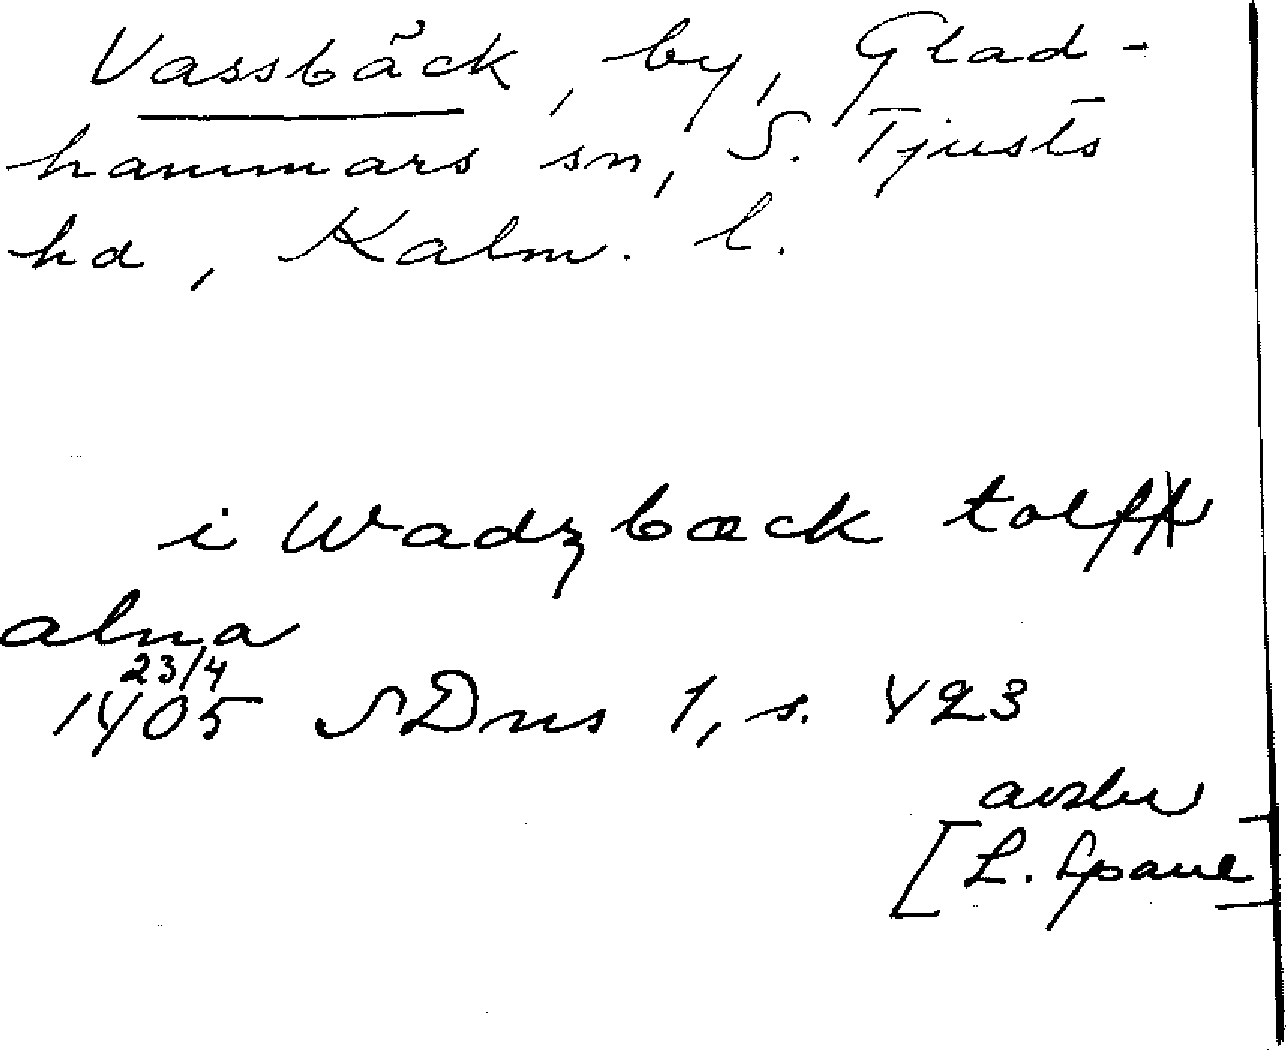 Vassbäck, by, Glad-
hammars sn, S. Tjusts
hd, Kalm. l.
i Wadzbæck tolff
alna
23/4
1405 SDns 1, s. 423
avskr
[L. Spaul]